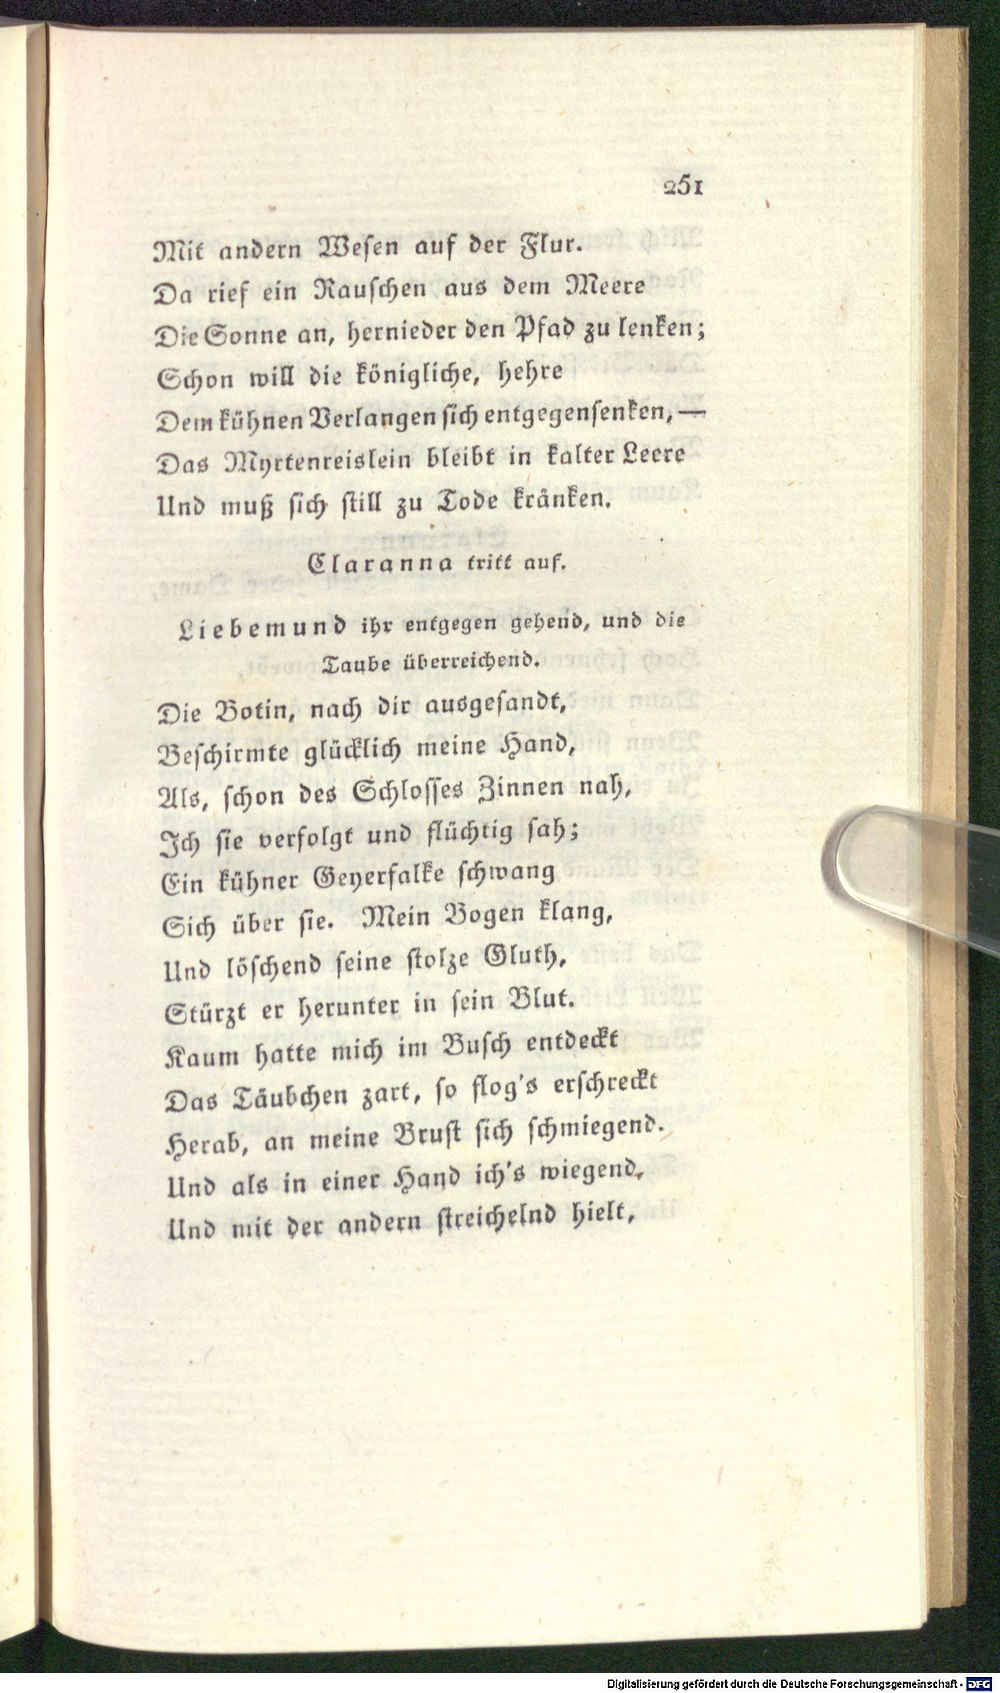 251
Mit andern Wesen auf der Flur.
Da rief ein Rauschen aus dem Meere
Die Sonne an, hernieder den Pfad zu lenken;
Schon will die königliche, hehre
Dem kühnen Verlangen sich entgegensenken, —
Das Myrtenreislein bleibt in kalter Leere
Und muß sich still zu Tode kränken.
Claranna tritt auf.
Liebemund ihr entgegen gehend, und die
Taube überreichend.
Die Botin, nach dir ausgesandt,
Beschirmte glücklich meine Hand,
Als, schon des Schlosses Zinnen nah,
Ich sie verfolgt und flüchtig sah;
Ein kühner Geyerfalke schwang
Sich über sie. Mein Bogen klang,
Und löschend seine stolze Gluth,
Stürzt er herunter in sein Blut.
Kaum hatte mich im Busch entdeckt
Das Täubchen zart, so flog's erschreckt
Herab, an meine Brust sich schmiegend.
Und als in einer Hand ich's wiegend,
Und mit der andern streichelnd hielt,
Digitalisierung gefördert durch die Deutsche Forschungsgemeinschaft - DFG